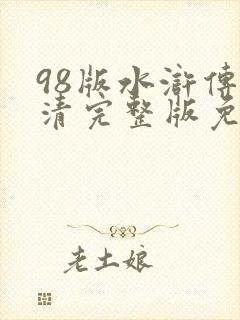 98版水浒传
清完整版免
老土娘